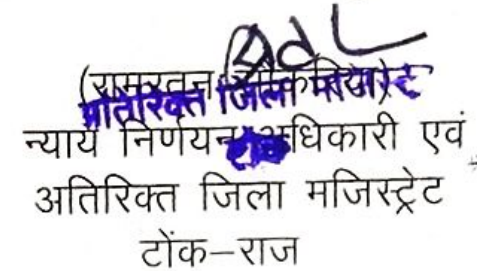 (रामरतन
अतिरिक्त जिला मजिस्ट्रेट
न्याय निर्णयन अधिकारी एवं
टोंक
अतिरिक्त जिला मजिस्ट्रेट
टोंक–राज